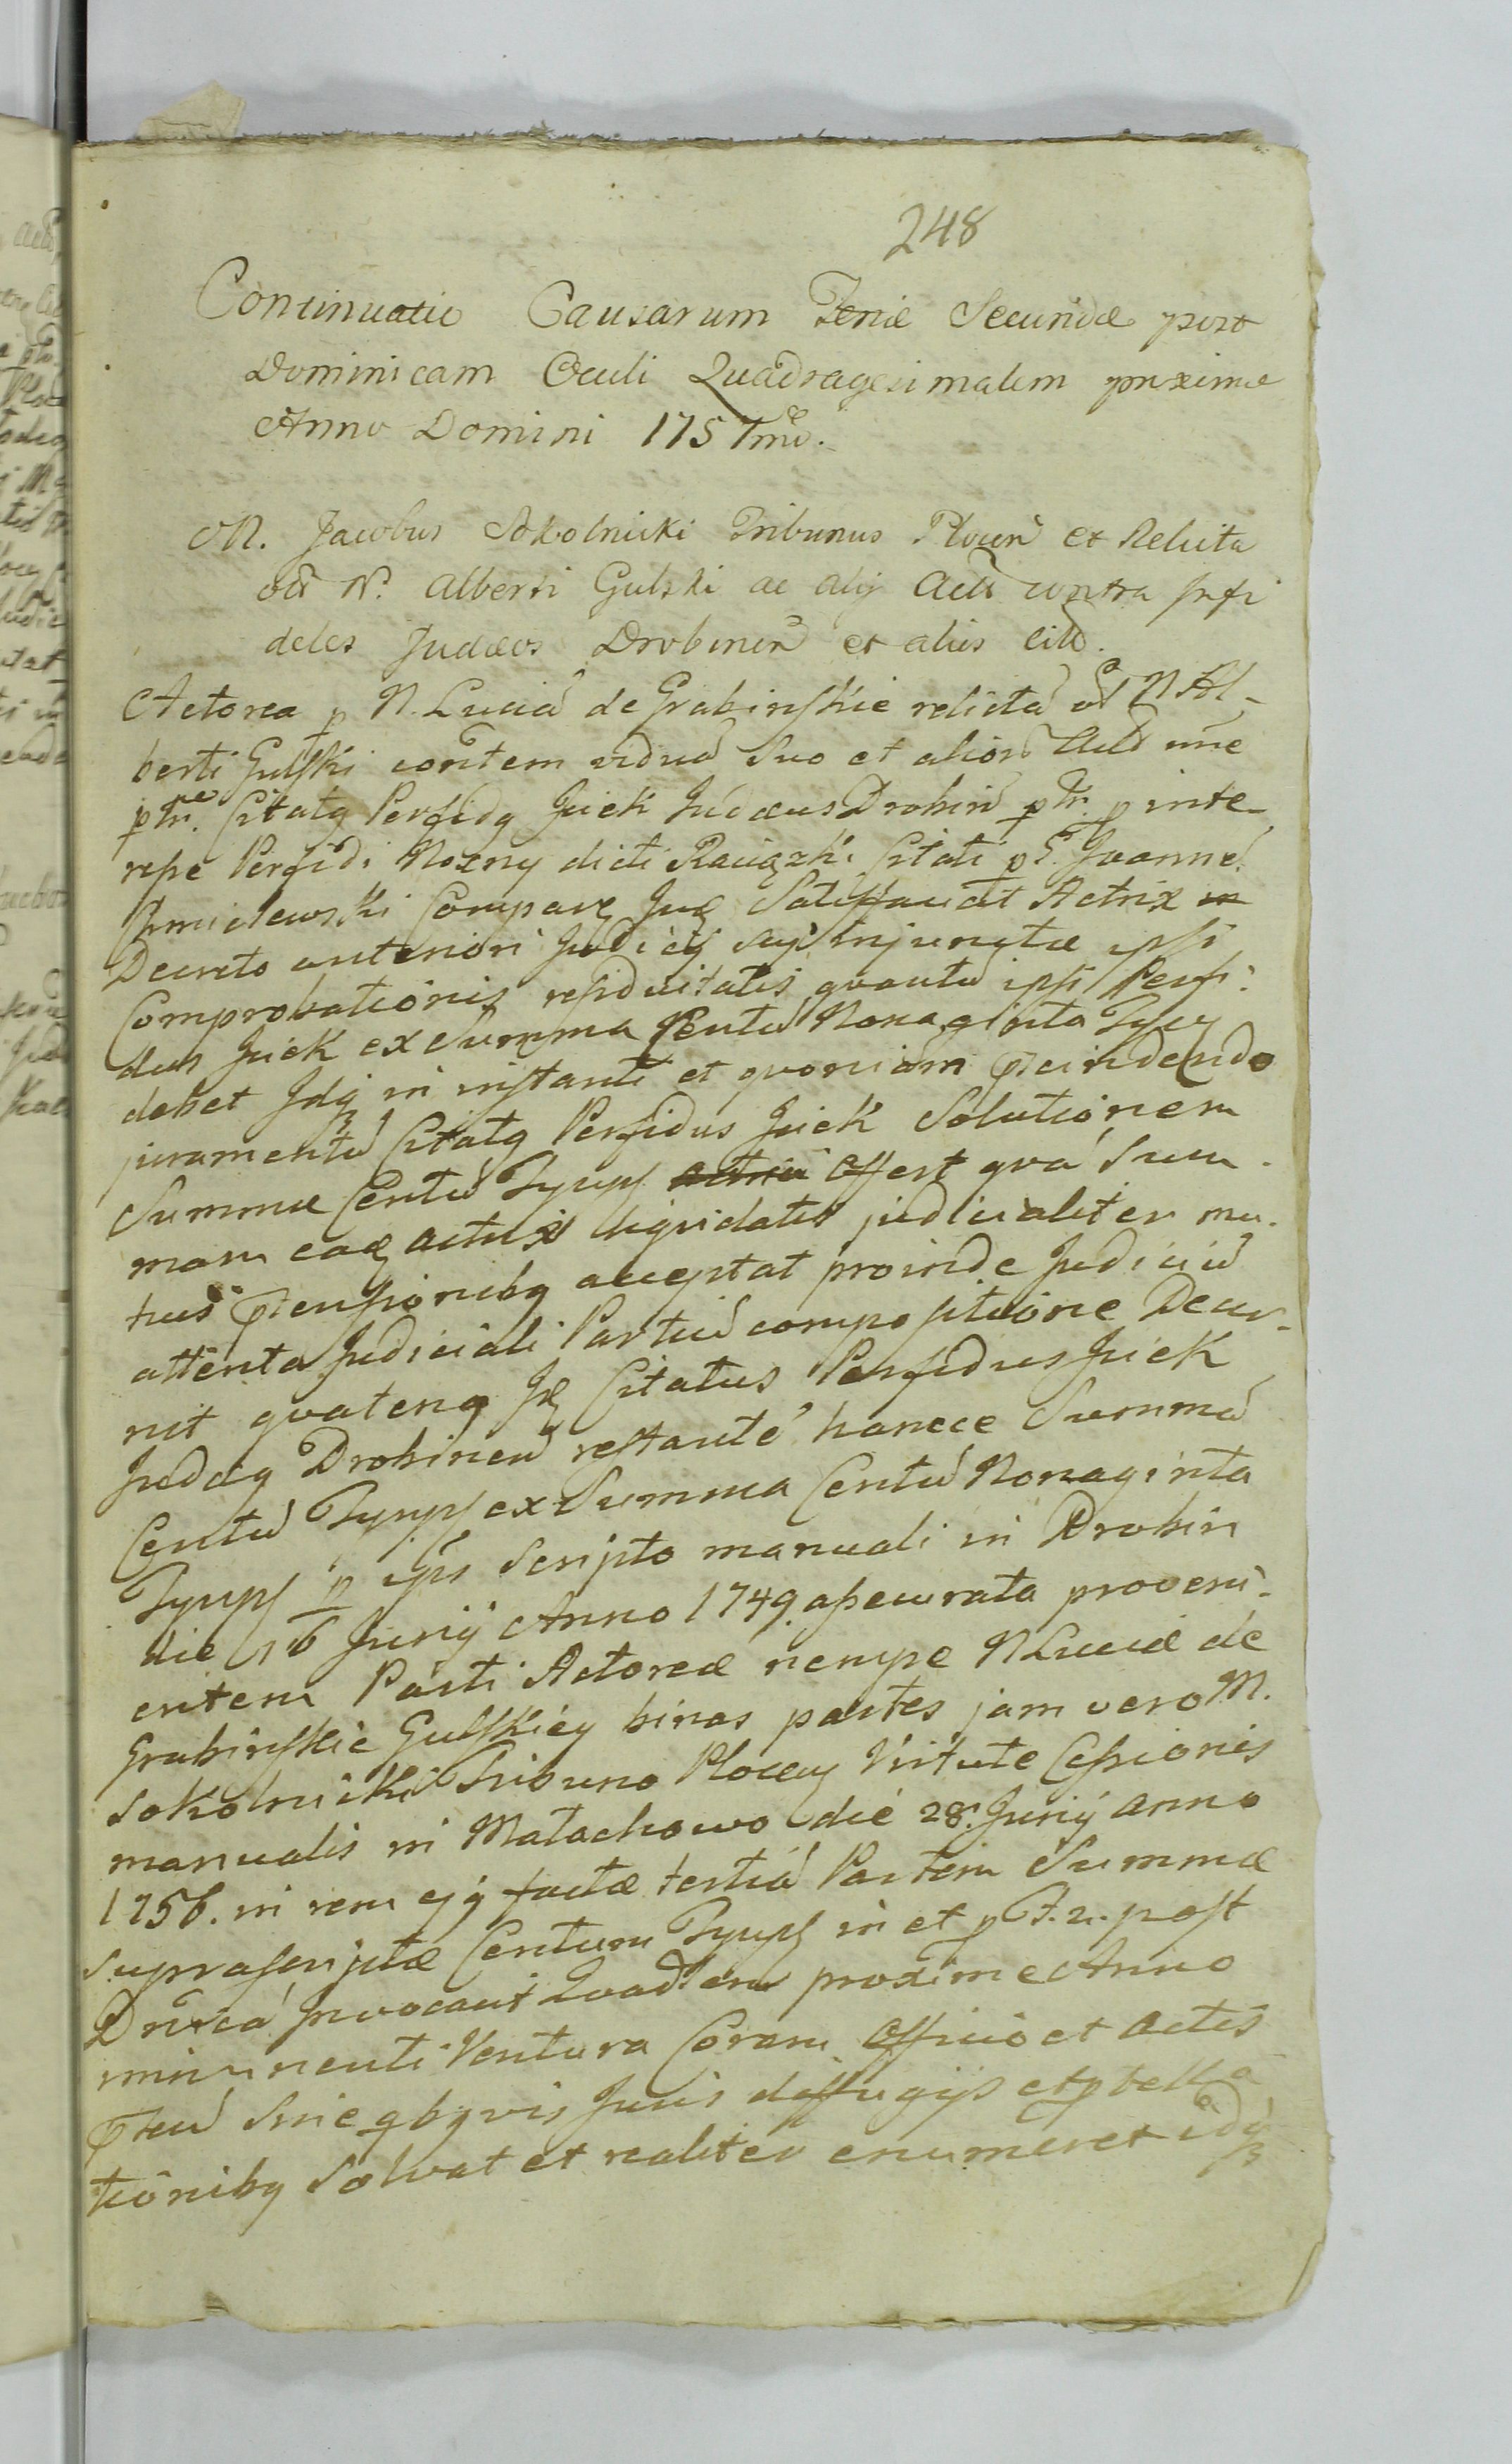 248
Continuatio Causarum Feriæ Secundæ post
Dominicam Oculi Quadragesimalem proxime
Anno Domini 1757mo.
M. Jacobus Sokolnicki Tribunus Plocen et Relicta
olt N. Alberti Gulski ac alij Act contra Infi
deles Judæos Drobinen et alios Cit.
Actorea p N. Lucia de Grabinskie relicta olt N Al-
berti Gulski viduã Suo et alior Act nñe
ptr. Citatq Perfidq Jcek Judæus Drobin ptr. p inte-
resse Perfidi Rozny dicti Raciązki Citati p G. Joanne
Chmielewski Compare Satisfaciat Actrix in
Decreto anteriori Judicij injunctæ ipsi
Comprobationis residuitatis quantũ ipsi Perfi:
dus Jcek ex Summa Centũ Nonaginta Tymf
debet Idq in instanti et quoniam
juramentũ Citatq Perfidus Jcek Solutionem
Summæ Centũ Tympf offert qvã Sum-
mam Actrix liqvidatis judicialiter mu-
tuis ptensionibq acceptat proinde Judiciũ
attenta Judiciali Partiũ compositione Decer-
nit qvatenq Citatus Perfidus Jcek
Judæq Drobinen restantẽ hancce Summã
Centũ Tympf ex Summa Centũ Nonaginta
Tympf ipi Scripto manuali in Drobin
die 16 Junij Anno 1749. assecurata proveni-
entem Parti Actoreæ nempe N Luciæ de
Grabinskie Gulskiey binas partes jam vero M.
Sokolnicki Tribuno Plocen Virtute Cessionis
manualis in Małachowo die 28. Junij anno
1756. in rem ejq factæ tertiã Partem Summæ
suprascriptæ Centum Tympf in et p F. 2. post
Dnicã Invocavit Quadlem proxime Anno
imminenti Ventura Coram Officio et Actis
Sine qbqvis Juris diffugijs et
tionibq Solvat et realiter enumeret idq